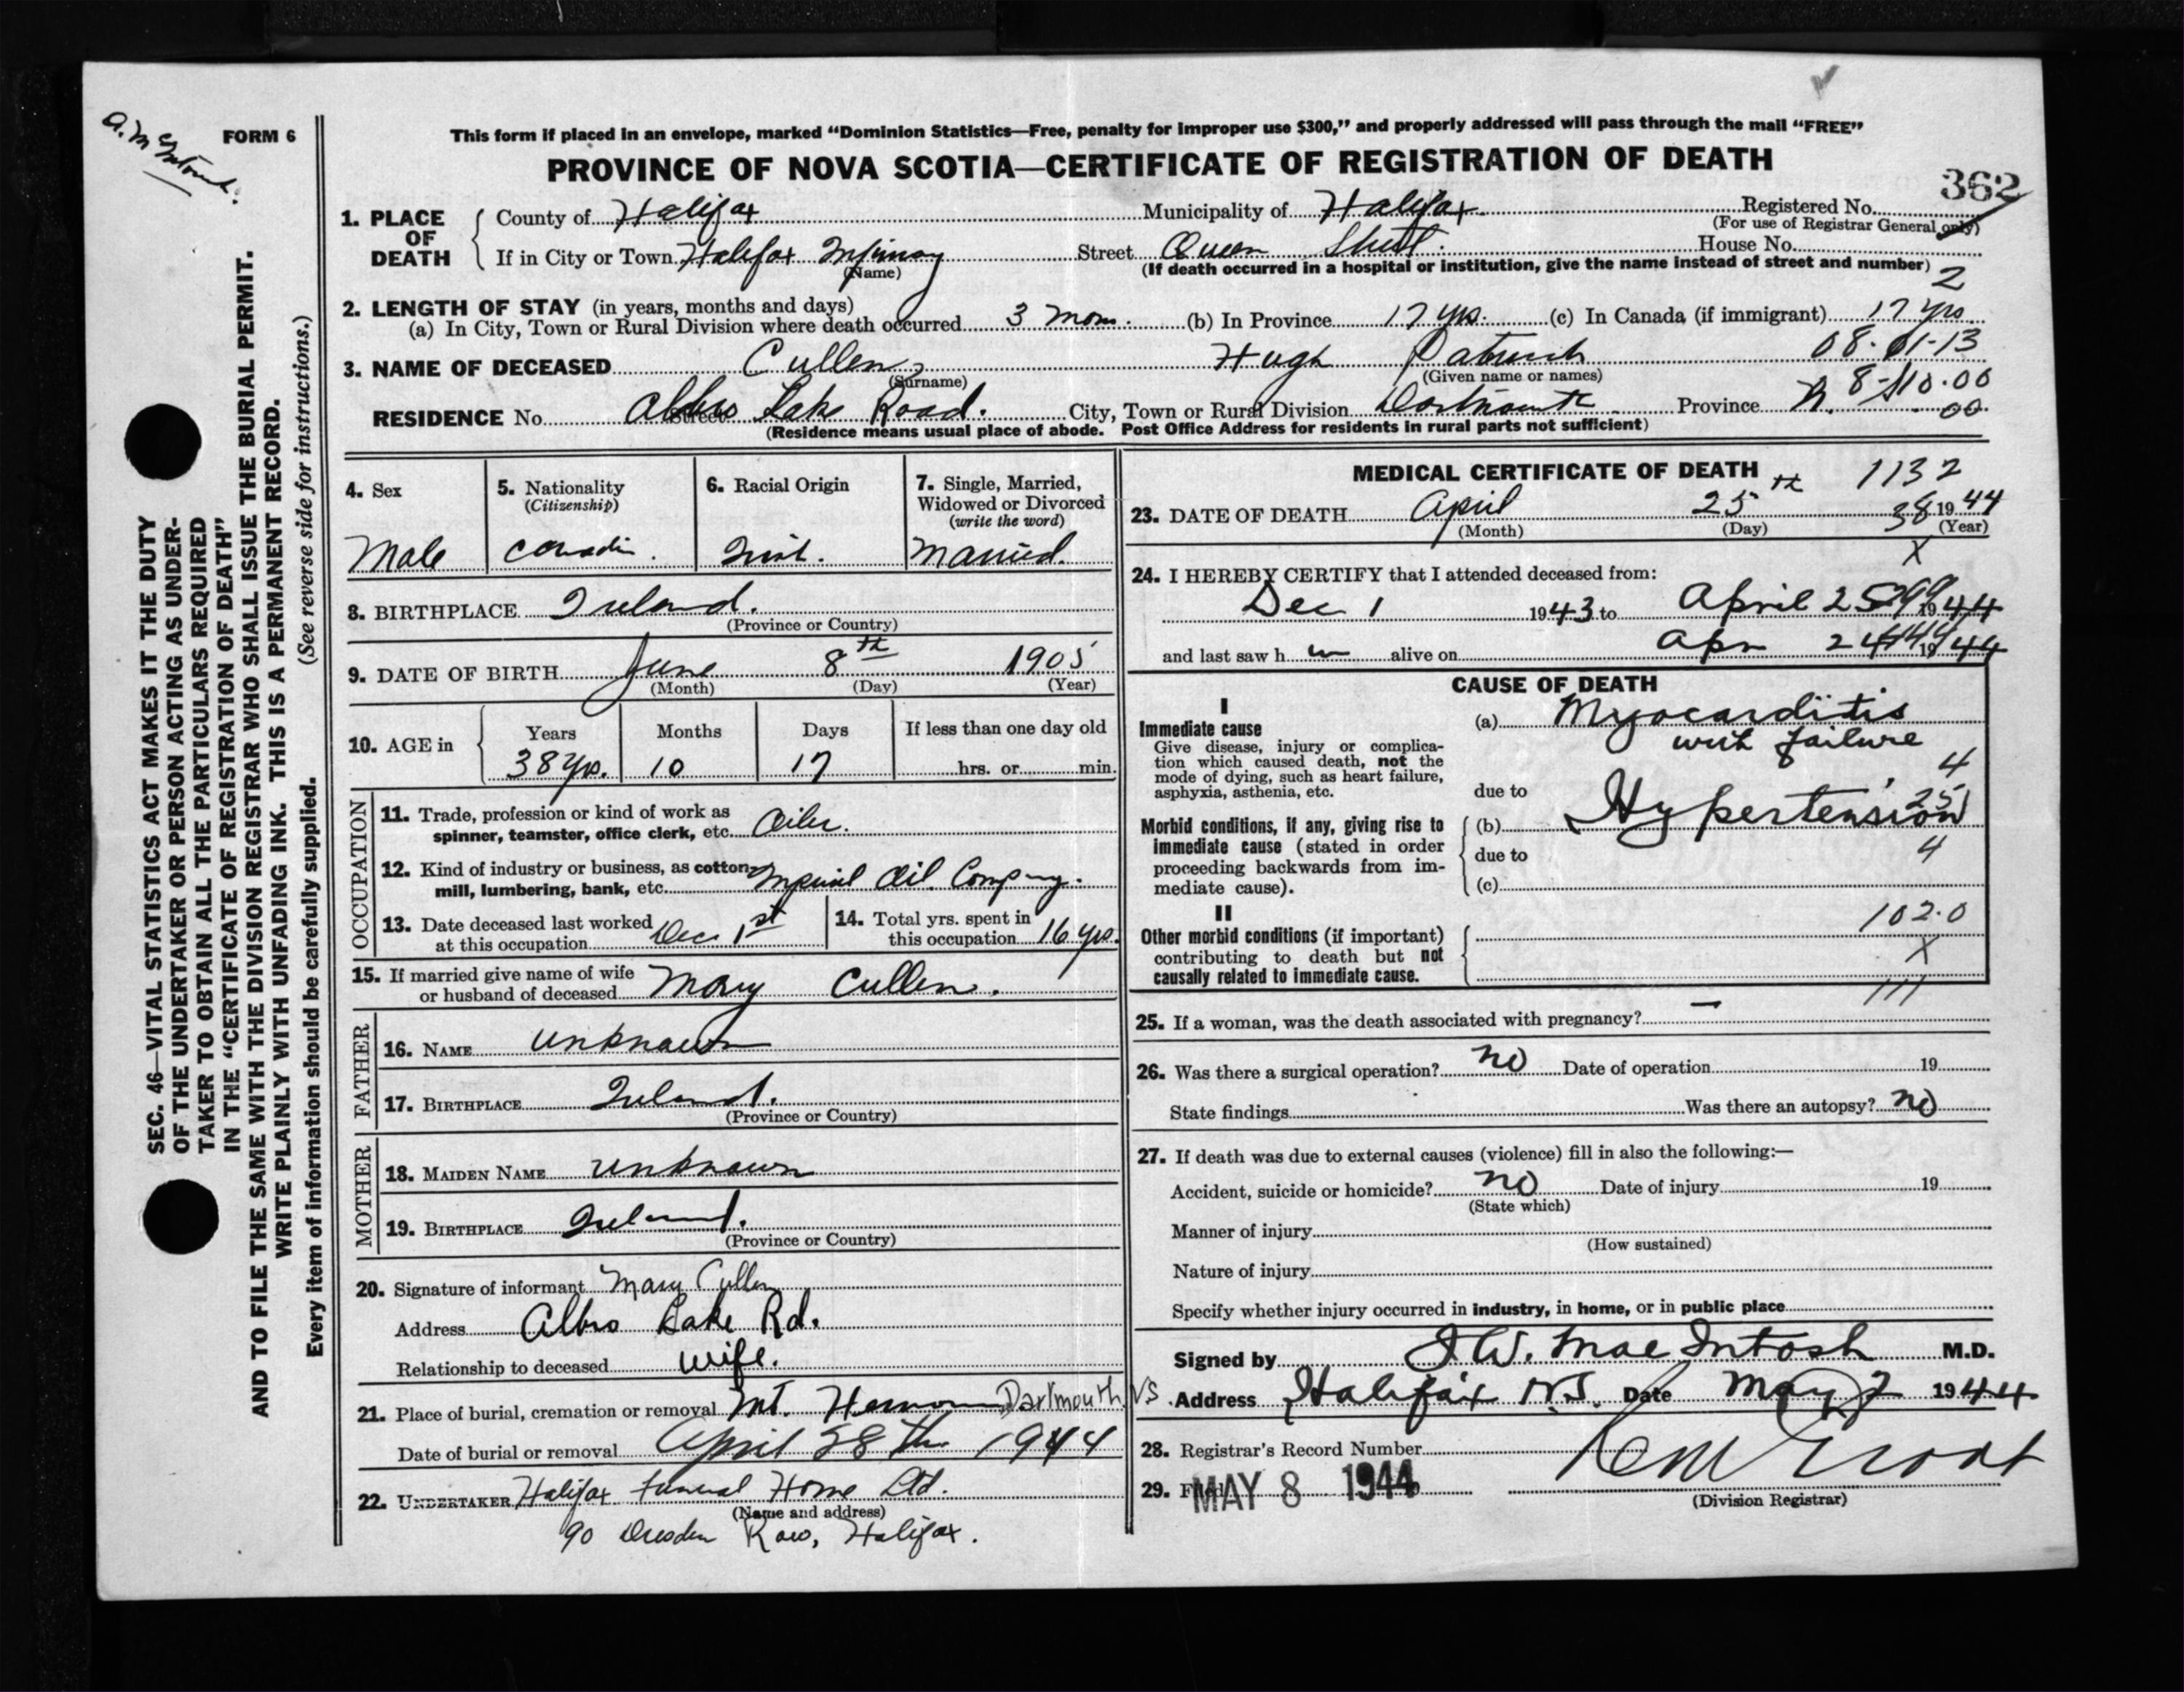 a. McIntosh.
FORM 6
This form if placed in an envelope, marked “Dominion Statistics—Free, penalty for improper use $300,” and properly addressed will pass through the mail “FREE”
PROVINCE OF NOVA SCOTIA—CERTIFICATE OF REGISTRATION OF DEATH
362
1. PLACE OF DEATH
County of Halifax Municipality of Halifax Registered No.
(For use of Registrar General only)
If in City or Town Halifax Infirmary Street Queen Street. House No.
(Name) (If death occurred in a hospital or institution, give the name instead of street and number)
2
2. LENGTH OF STAY (in years, months and days)
(a) In City, Town or Rural Division where death occurred 3 mons. (b) In Province 17 yrs. (c) In Canada (if immigrant) 17 yrs
08-01-13
3. NAME OF DECEASED Cullen, Hugh Patrick
(Surname) (Given name or names)
8-10.00
RESIDENCE No. Albro Lake Road. City, Town or Rural Division Dartmouth Province N. 00
Street
(Residence means usual place of abode. Post Office Address for residents in rural parts not sufficient)
4. Sex
Male
5. Nationality
(Citizenship)
Canadin.
6. Racial Origin
Irish.
7. Single, Married, Widowed or Divorced
(write the word)
Married.
8. BIRTHPLACE Ireland.
(Province or Country)
9. DATE OF BIRTH June 8th 1905
(Month) (Day) (Year)
10. AGE in Years Months Days If less than one day old
38 yrs. 10 17 hrs. or min.
OCCUPATION
11. Trade, profession or kind of work as
spinner, teamster, office clerk, etc. Oiler.
12. Kind of industry or business, as cotton
mill, lumbering, bank, etc. Imperial Oil Company.
13. Date deceased last worked
at this occupation Dec 1st
14. Total yrs. spent in
this occupation 16 yrs.
15. If married give name of wife
or husband of deceased Mary Cullen.
FATHER
16. NAME unknown
17. BIRTHPLACE Ireland.
(Province or Country)
MOTHER
18. MAIDEN NAME unknown
19. BIRTHPLACE Ireland.
(Province or Country)
20. Signature of informant Mary Cullen
Address Albro Lake Rd.
Relationship to deceased wife.
21. Place of burial, cremation or removal Mt. Hermon Dartmouth NS
Date of burial or removal April 28th 1944
22. UNDERTAKER Halifax Funeral Home Ltd.
(Name and address)
90 Dresden Row, Halifax.
MEDICAL CERTIFICATE OF DEATH
1132
23. DATE OF DEATH April 25th 1944
(Month) (Day) (Year)
38
X
24. I HEREBY CERTIFY that I attended deceased from:
Dec 1 1943 to April 25 1944
and last saw h im alive on Apr 24 1944
CAUSE OF DEATH
I
Immediate cause
Give disease, injury or complication which caused death, not the
mode of dying, such as heart failure,
asphyxia, asthenia, etc.
(a) Myocarditis
with failure
4
due to
251
Morbid conditions, if any, giving rise to
immediate cause (stated in order
proceeding backwards from immediate cause).
(b) Hypertension
due to
4
(c)
II
102.0
Other morbid conditions (if important)
contributing to death but not
causally related to immediate cause.
X
111
25. If a woman, was the death associated with pregnancy? —
26. Was there a surgical operation? no Date of operation 19
State findings Was there an autopsy? no
27. If death was due to external causes (violence) fill in also the following:—
Accident, suicide or homicide? no Date of injury 19
(State which)
Manner of injury
(How sustained)
Nature of injury
Specify whether injury occurred in industry, in home, or in public place
Signed by J W. MacIntosh M.D.
Address Halifax N.S. Date May 2 1944
28. Registrar's Record Number
29. Filed MAY 8 1944
(Division Registrar)
SEC. 46—VITAL STATISTICS ACT MAKES IT THE DUTY
OF THE UNDERTAKER OR PERSON ACTING AS UNDER-
TAKER TO OBTAIN ALL THE PARTICULARS REQUIRED
IN THE “CERTIFICATE OF REGISTRATION OF DEATH”
AND TO FILE THE SAME WITH THE DIVISION REGISTRAR WHO SHALL ISSUE THE BURIAL PERMIT.
WRITE PLAINLY WITH UNFADING INK. THIS IS A PERMANENT RECORD.
Every item of information should be carefully supplied. (See reverse side for instructions.)